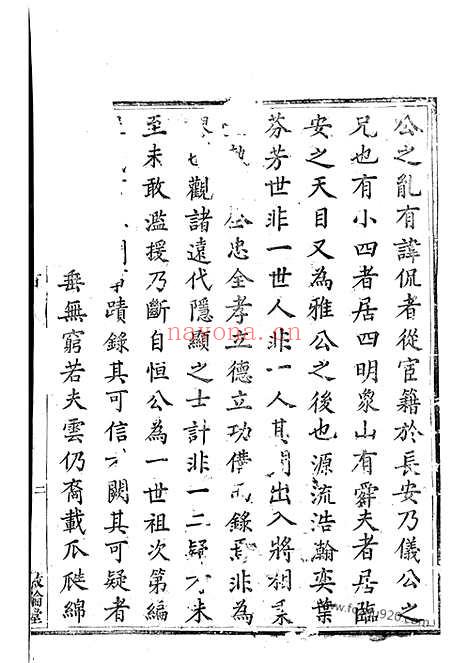 公之亂有諱侃者從宦籍於長安乃儀公之
兄也有小四者居四明象山有辭夫者居臨
安之天目又為雅公之後也源流浩瀚奕葉
芬芳世非一世人非一人其間出入將相
忠全孝立德立功俾錄焉非為
觀諸遠代隱顯之士計非一二疑未
至未敢濫援乃斷自恒公為一世祖次第編
蹟錄其可信闕其可疑者
垂無窮若夫雲仍裔載瓜瓞綿
二
nayona.cn